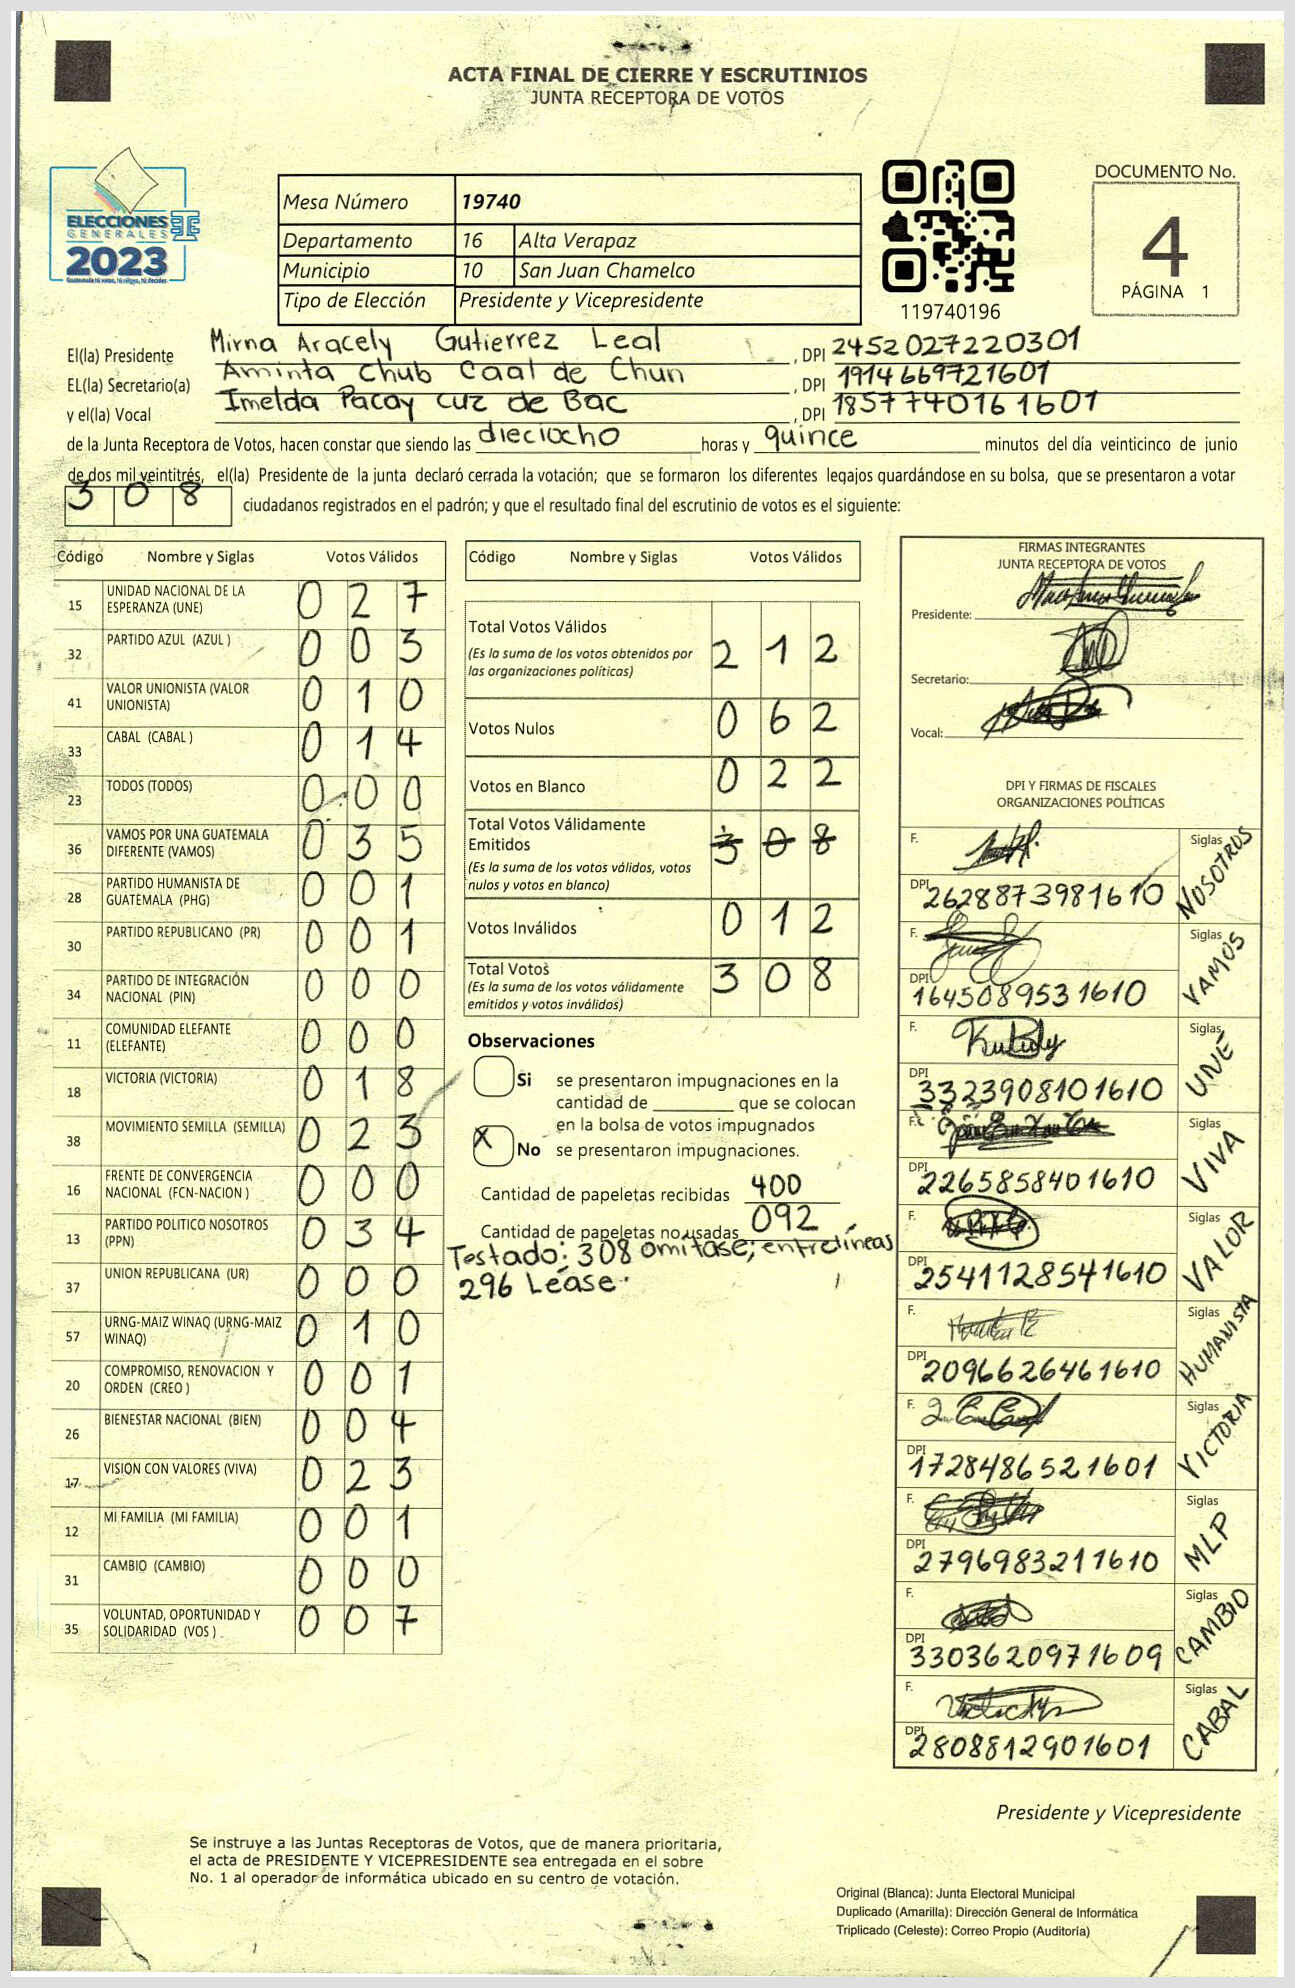 ACTA FINAL DE CIERRE Y ESCRUTINIOS
JUNTA RECEPTORA DE VOTOS
ELECCIONES
GENERALES
2023
Mesa Número 19740
Departamento 16 Alta Verapaz
Municipio 10 San Juan Chamelco
Tipo de Elección Presidente y Vicepresidente
119740196
DOCUMENTO No.
4
PÁGINA 1
El(la) Presidente Mirna Aracely Gutierrez Leal , DPI 2452027220301
EL(la) Secretario(a) Aminta Chub Caal de Chun , DPI 1914669721601
y el(la) Vocal Imelda Pacay Cuz de Bac , DPI 1857740161601
de la Junta Receptora de Votos, hacen constar que siendo las dieciocho horas y quince minutos del día veinticinco de junio
de dos mil veintitrés, el(la) Presidente de la junta declaró cerrada la votación; que se formaron los diferentes legajos guardándose en su bolsa, que se presentaron a votar
308 ciudadanos registrados en el padrón; y que el resultado final del escrutinio de votos es el siguiente:
Código Nombre y Siglas Votos Válidos
15 UNIDAD NACIONAL DE LA ESPERANZA (UNE) 027
32 PARTIDO AZUL (AZUL ) 003
41 VALOR UNIONISTA (VALOR UNIONISTA) 010
33 CABAL (CABAL ) 014
23 TODOS (TODOS) 000
36 VAMOS POR UNA GUATEMALA DIFERENTE (VAMOS) 035
28 PARTIDO HUMANISTA DE GUATEMALA (PHG) 001
30 PARTIDO REPUBLICANO (PR) 001
34 PARTIDO DE INTEGRACIÓN NACIONAL (PIN) 000
11 COMUNIDAD ELEFANTE (ELEFANTE) 000
18 VICTORIA (VICTORIA) 018
38 MOVIMIENTO SEMILLA (SEMILLA) 023
16 FRENTE DE CONVERGENCIA NACIONAL (FCN-NACION ) 000
13 PARTIDO POLITICO NOSOTROS (PPN) 034
37 UNION REPUBLICANA (UR) 000
57 URNG-MAIZ WINAQ (URNG-MAIZ WINAQ) 010
20 COMPROMISO, RENOVACION Y ORDEN (CREO ) 001
26 BIENESTAR NACIONAL (BIEN) 004
17 VISION CON VALORES (VIVA) 023
12 MI FAMILIA (MI FAMILIA) 001
31 CAMBIO (CAMBIO) 000
35 VOLUNTAD, OPORTUNIDAD Y SOLIDARIDAD (VOS ) 007
Código Nombre y Siglas Votos Válidos
Total Votos Válidos 212
(Es la suma de los votos obtenidos por
las organizaciones políticas)
Votos Nulos 062
Votos en Blanco 022
Total Votos Válidamente
Emitidos 308
(Es la suma de los votos válidos, votos
nulos y votos en blanco)
Votos Inválidos 012
Total Votos 308
(Es la suma de los votos válidamente
emitidos y votos inválidos)
Observaciones
Si se presentaron impugnaciones en la
cantidad de ________ que se colocan
en la bolsa de votos impugnados
X No se presentaron impugnaciones.
Cantidad de papeletas recibidas 400
Cantidad de papeletas no usadas 092
Testado: 308 omitase; entrelíneas
296 Léase.
FIRMAS INTEGRANTES
JUNTA RECEPTORA DE VOTOS
Presidente:
Secretario:
Vocal:
DPI Y FIRMAS DE FISCALES
ORGANIZACIONES POLÍTICAS
F. Siglas NOSOTROS
DPI 2628873981610
F. Siglas VAMOS
DPI 1645089531610
F. Siglas UNE
DPI 3323908101610
F. Siglas VIVA
DPI 2265858401610
F. Siglas VALOR
DPI 2541128541610
F. Siglas HUMANISTA
DPI 2096626461610
F. Siglas VICTORIA
DPI 1728486521601
F. Siglas MLP
DPI 2796983211610
F. Siglas CAMBIO
DPI 3303620971609
F. Siglas CABAL
DPI 2808812901601
Presidente y Vicepresidente
Se instruye a las Juntas Receptoras de Votos, que de manera prioritaria,
el acta de PRESIDENTE Y VICEPRESIDENTE sea entregada en el sobre
No. 1 al operador de informática ubicado en su centro de votación.
Original (Blanca): Junta Electoral Municipal
Duplicado (Amarilla): Dirección General de Informática
Triplicado (Celeste): Correo Propio (Auditoría)